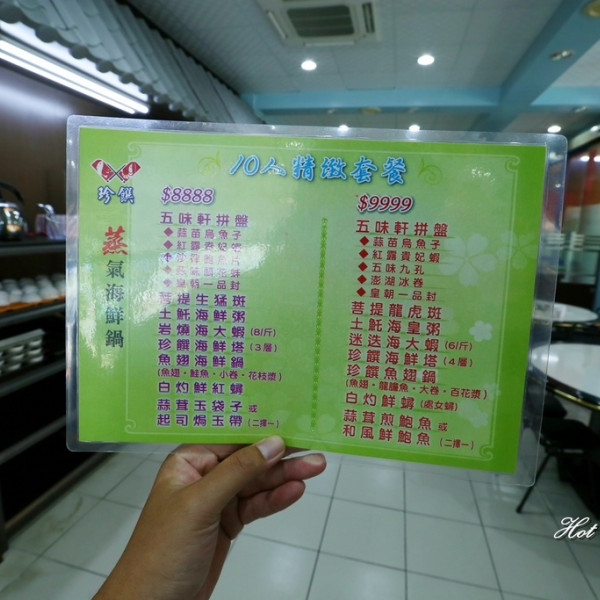 10人精緻套餐
珍饌
蒸氣海鮮鍋
$8888
五味軒拼盤
◆蒜苗烏魚子
◆紅露貴妃
◆皇朝一品封
菩提生猛斑
土魠海鮮粥
岩燒海大蝦(8/斤)
珍饌海鮮塔(3層)
魚翅海鮮鍋
(魚翅・鮭魚・小卷・花枝漿)
白灼鮮紅蟳
蒜茸玉袋子 或
起司焗玉帶(二擇一)
$9999
五味軒拼盤
◆蒜苗烏魚子
◆紅露貴妃蝦
◆五味九孔
◆澎湖冰卷
◆皇朝一品封
菩提龍虎斑
土魠海皇粥
迷迭海大蝦(6/斤)
珍饌海鮮塔(4層)
珍饌魚翅鍋
(魚翅・龍膽魚・大卷・百花漿)
白灼鮮蟳(處女蟳)
蒜茸煎鮑魚 或
和風鮮鮑魚(二擇一)
Hot